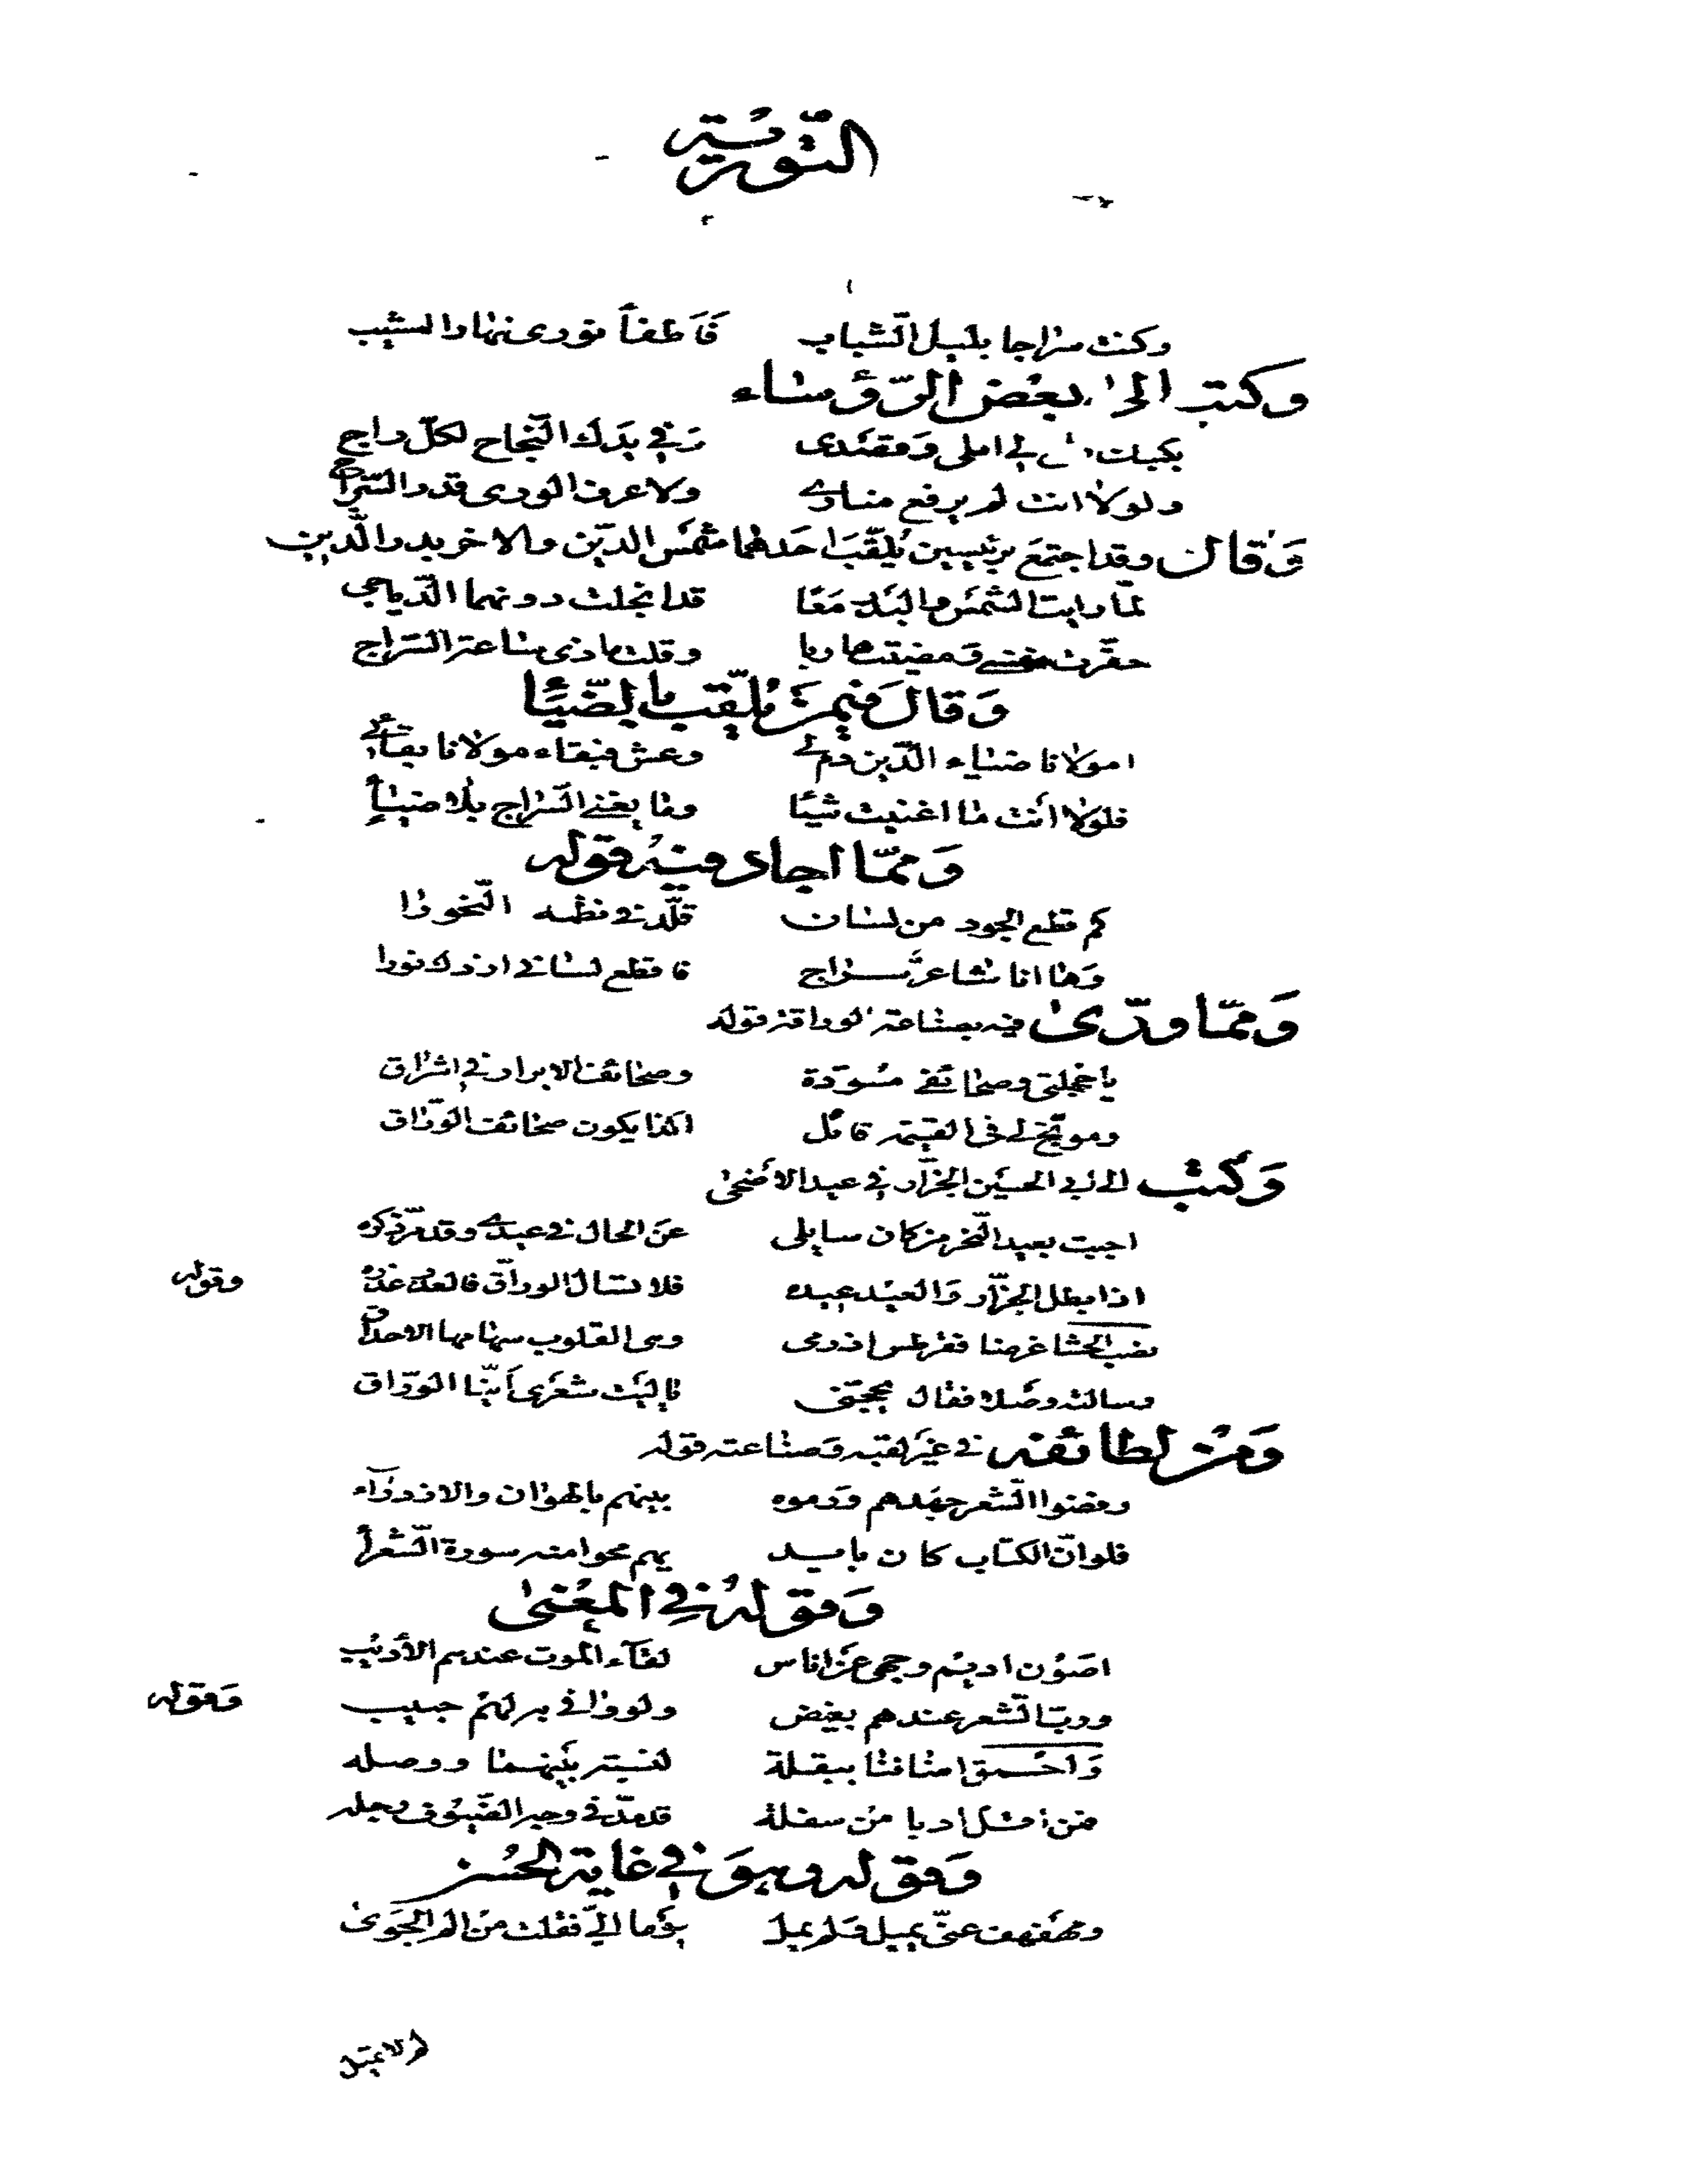 التورية
وكنت سراجا بليل الشباب فَاَطفأ نورى نهار المشيب
وكتب الى بعض الرؤساء
بكيت لى املى وَمقصدى وَفي يدَك النجاح لكلّ راج
ولولا انت لم يرفع منارى ولا عرف الورى قدر السّراج
وَقال وقد اجتمَع برئيسين يُلقّبَ احَدهما شمسَ الدّين والاخر بدر الدّين
لمّا رايت الشمسَ والبَدر مَعًا قد انجلت دونهما الدّياجي
حقّرت نفسي وَمضيت هاربا وقلت ماذى ساعة السّراج
وَقالَ فيمَن يُلقّب بالضّيَّا
امولانا ضياء الدّين دم لي وعش فبقاء مولانا بقائي
فلولا أنت ما اغنيت شيئًا وما يغني السّراج بلا ضياء
وَممّا اجاد فيه قوله
كم قطع الجود من لسان قلّد في نظمه النّحورا
وَها انا شاعرٌ سراج فاقطع لساني ازدك نورا
وَممّا ورّى فيه بصناعة الوراقة قوله
يا خجلتى وصحائفي مسُوَدّة وصحائف الابرار في اشراق
وموبّخ لى في القيمة قائل اكذا يكون صحائف الورّاق
وَكتب الى ابي الحسَين الجزّار في عيد الاضحَى
اجبت بعيد النّحر من كان سايلى عنَ الحال في عيدى وقد مرّ ذكره
اذا بطل الجزّار وَالعيد عيده فلا تسال الوراّق فالعذر عذره
وقوله
نصب الحشا غرضا فقرطس اذ رمى ورمى القلوب سهامها الاحداق
وسالته وصَلا فقال يحجتى يا ليت شعرى اَينّا الورّاق
وَمن لطائفه في غير لقبه وَصناعته قوله
رفضوا الشعر جهدهم وَرموه بينهم بالهوان والازدرآء
فلو انّ الكتاب كان بايديهم محوا منه سورة الشّعرا
وَقوله في المعنى
اصَون اديم وجهى عن اناس لقآء الموت عندهم الأديب
وربّ الشعر عندهم بغيض ولو وافى به لهم حبيب
وَقوله
وَاحَمق اضافنا ببقلة لنسبة بينهما ووصله
فمن اقل ادبا من سفلة قد مدّ في وجه الضّيوف رجله
وَقوله وهوَ في غاية الحُسن
ومهفهف عنّى يميل وَلم يمل يوَما الىّ فقلت من الم الجوَى
لم لا تميل